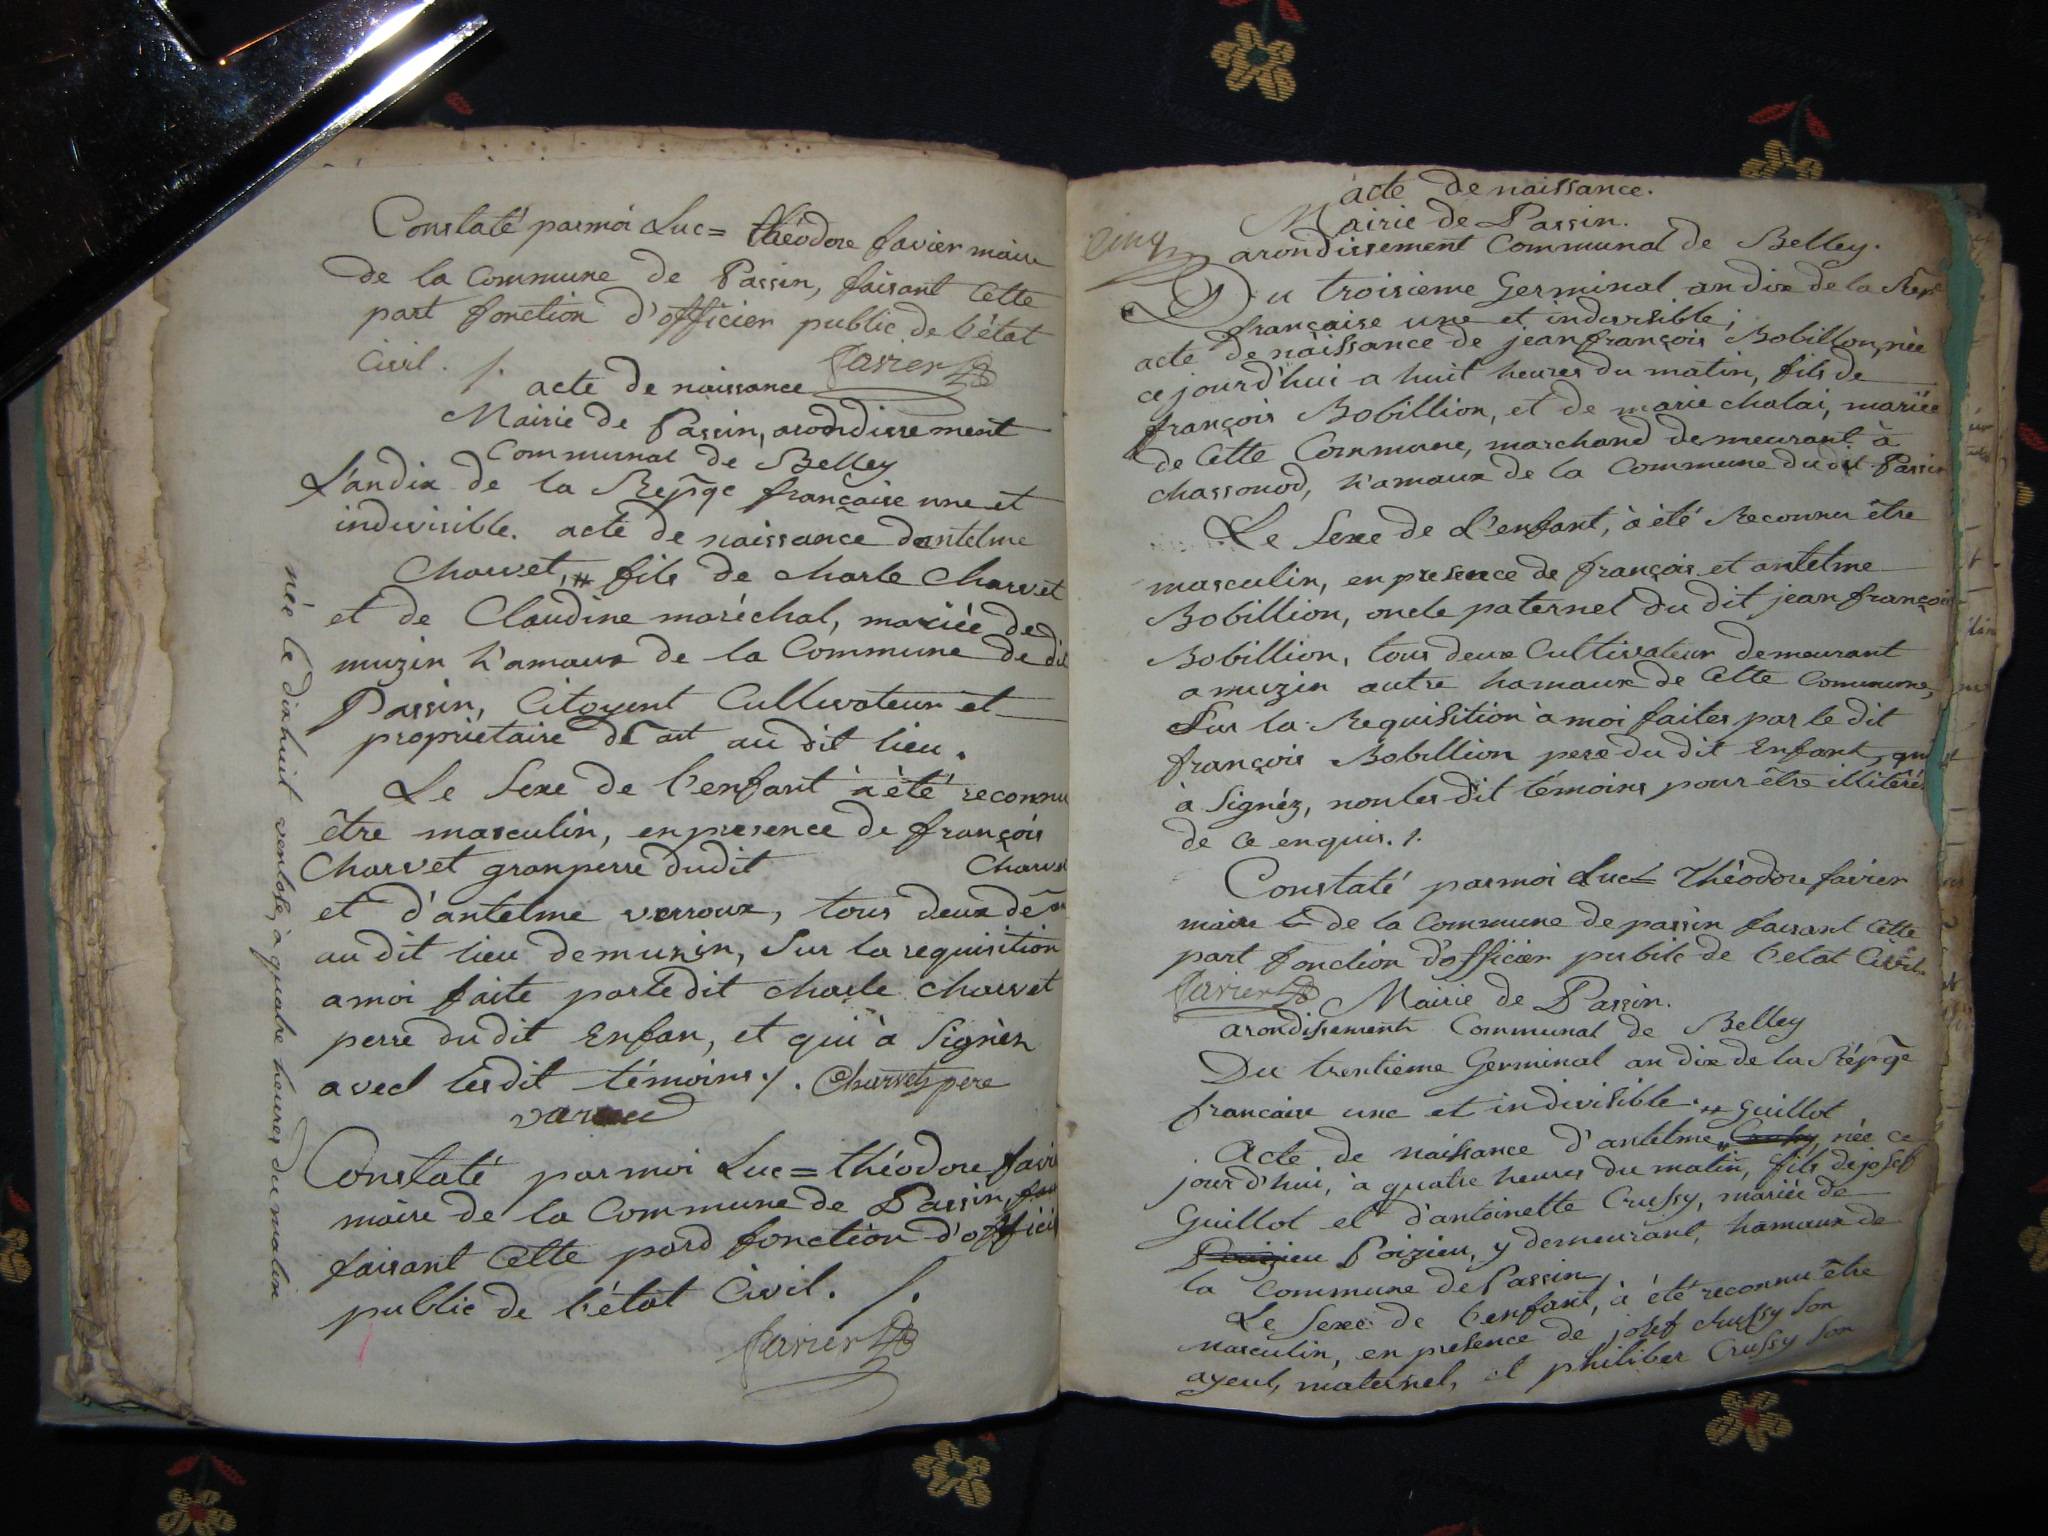 Constaté par moi Luc= théodore favier maire
de la Commune de Passin, faisant Cette
part fonction d'officier public de l'état
Civil. /. Favier
acte de naissance
Mairie de Passin, arondissement
Communal de Belley
L'an dix de la Repqe française une et
indivisible. acte de naissance dantelme
Charvet, # fils de charle Charvet
et de Claudine maréchal, mariée de
muzin h'amaux de la Commune de dit
Passin, Citoyent Cultivateur et
propriétaire au dit lieu.
Le Sexe de l'enfant à été reconnu
être masculin, en presence de françois
Charvet granperre dudit Charvet
et d'antelme verroux, tous deux
au dit lieu de muzin, Sur la requisition
a moi faite par le dit charle charvet
perre du dit Enfan, et qui à Signèz
avec les dit témoins ./. Charvet pere
Constaté par moi Luc = théodore favi
maire de la Commune de Passin,
faisant Cette pard fonction d'officier
public de l'état Civil. /.
Favier
née le dixhuit ventose, à quatre heures du matin
acte de naissance.
Mairie de Passin.
cinq arondissement Communal de Belley.
Du troisieme Germinal an dix de la Repe
française une et indivisible;
acte de naissance de jean françois Bobillion, née
ce jourd'hui a huit heures du matin, fils de
françois Bobillion, et de marie chalai, mariée
de Cette Commune, marchand demeurant à
chassonod, h'amaux de la Commune du dit Passin
Le Sexe de L'enfant, à été Reconnu être
masculin, en presence de françois et antelme
Bobillion, oncle paternel du dit jean françois
Bobillion, tous deux Cultivateur demeurant
a muzin autre hamaux de Cette Commune,
Sur la Requisition à moi faites par le dit
françois Bobillion pere du dit Enfant, qui
à Signéz, non les dit témoins pour être illitérés
de ce enquis. /.
Constaté par moi Luc= Théodore favier
maire de la Commune de passin faisant Cette
part fonction d'officier public de l'etat Civil.
Favier Mairie de Passin.
arondissement Communal de Belley
Du trentieme Germinal an dix de la Répqe
francaise une et indivisible. # Guillot
Acte de naissance d'antelme # née ce
jourd'hui, à quatre heures du matin, fils de josef
Guillot et d'antoinette Crussy, mariée de
Poizieu, y demeurant, hamaux de
la Commune de Passin
Le Sexe de l'enfant, à été reconnu être
masculin, en presence de josef Crussy son
ayeul, maternel, et philiber Crussy Son